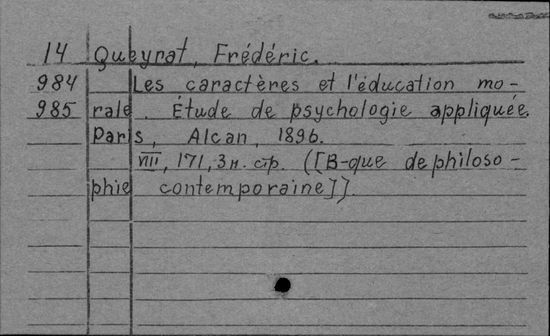 14 Queyrat, Frédéric.
984 Les caractères et l'éducation mo-
985 rale. Étude de psychologie appliquée.
Paris, Alcan, 1896.
VIII, 171, 3 н. стр. ([B-que de philoso-
phie contemporaine])